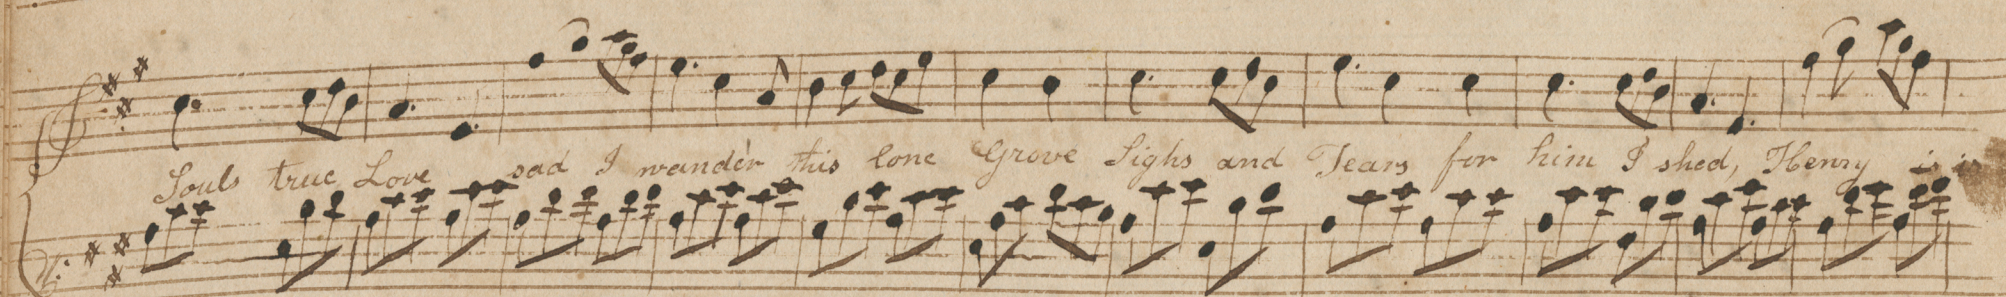 Souls true Love sad I wander this lone Grove Sighs and Tears for him I shed, Henry is